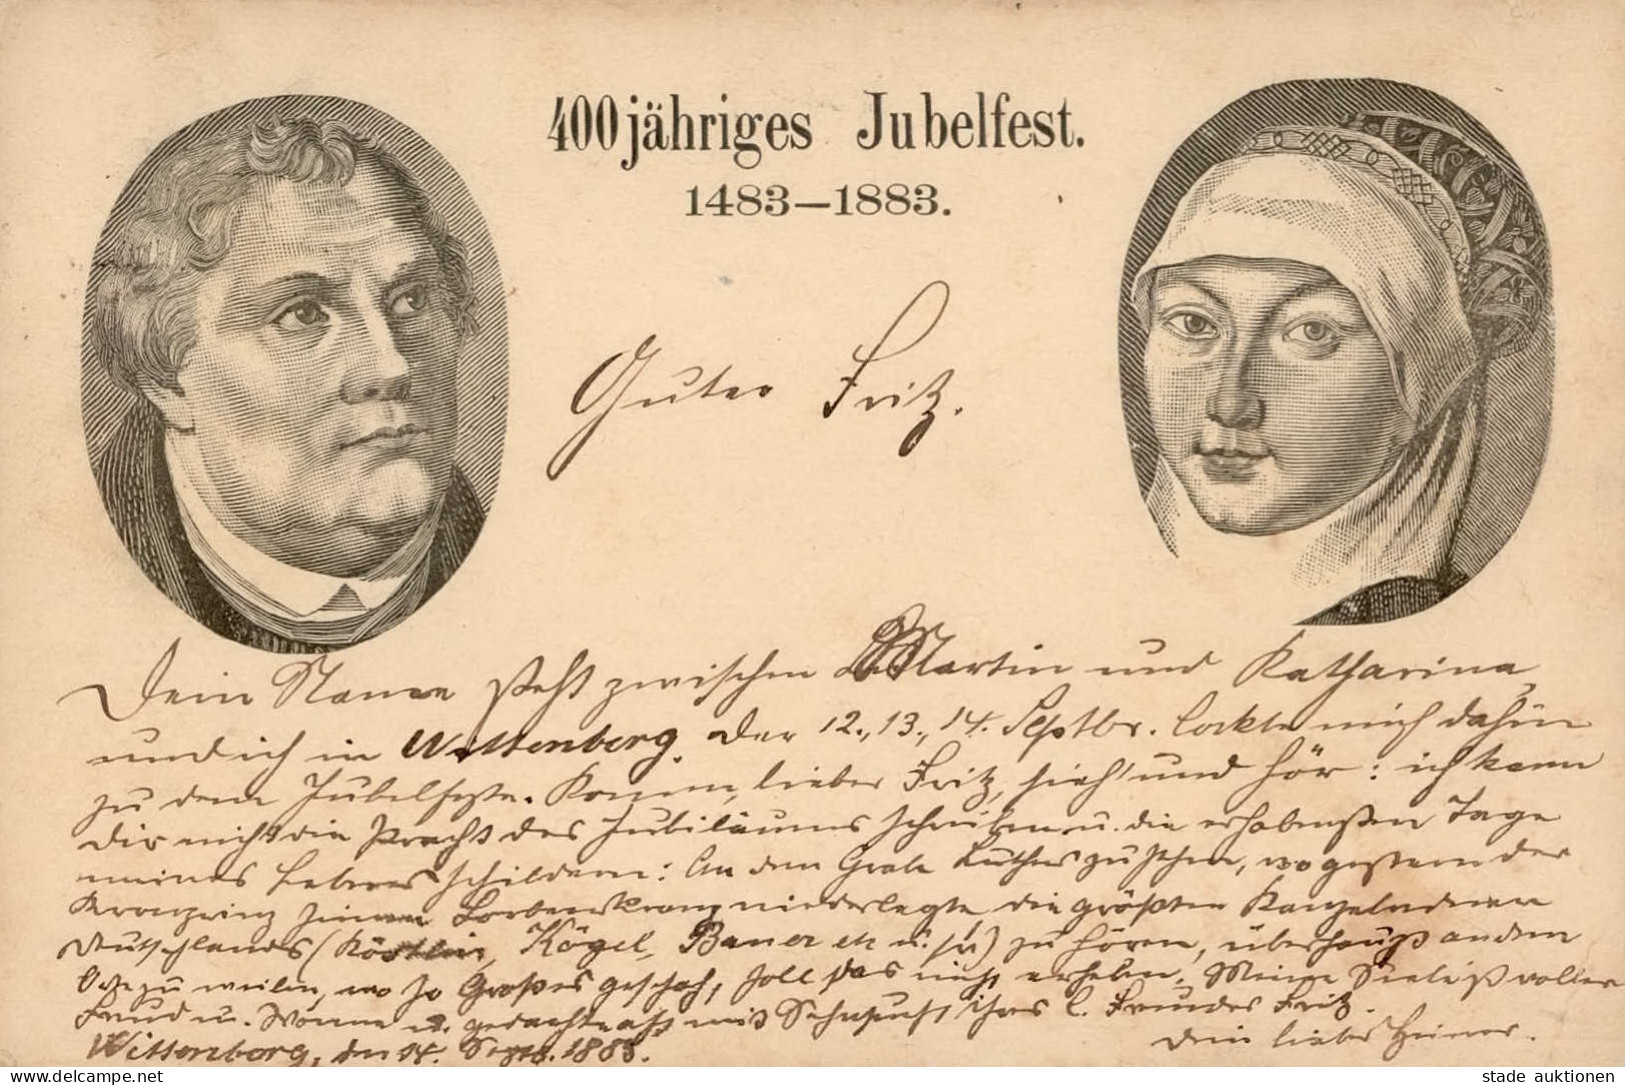 400jähriges Jubelfest.
1483—1883.
Guter Fritz.
Dein Name steht zwischen Martin und Katharina,
und ich in Wittenberg. Der 12., 13., 14. Septbr. lockte mich dahin
zu dem Jubelfeste. Komm, lieber Fritz, sieh' und hör: ich kann
Dir nicht die Pracht des Jubiläums schreiben u. die erhabensten Tage
meines Lebens schildern: An dem Grabe Luthers zu stehn, wo gestern der
Kronprinz seinen Lorbeerkranz niederlegte die größten Kanzelredner
Deutschlands (Köstlin, Kögel, Baur etc) zu hören, überhaupt an dem
Orte zu weilen, wo so Großes geschah, soll das nicht erheben. Meine Seele ist voller
Freud u. Wonne u. gedachte oft mit Sehnsucht ihres l. Freundes Fritz.
Wittenberg, den 14. Sept. 1883. Dein lieber
stade auktionen
www.delcampe.net
EliteMedianet